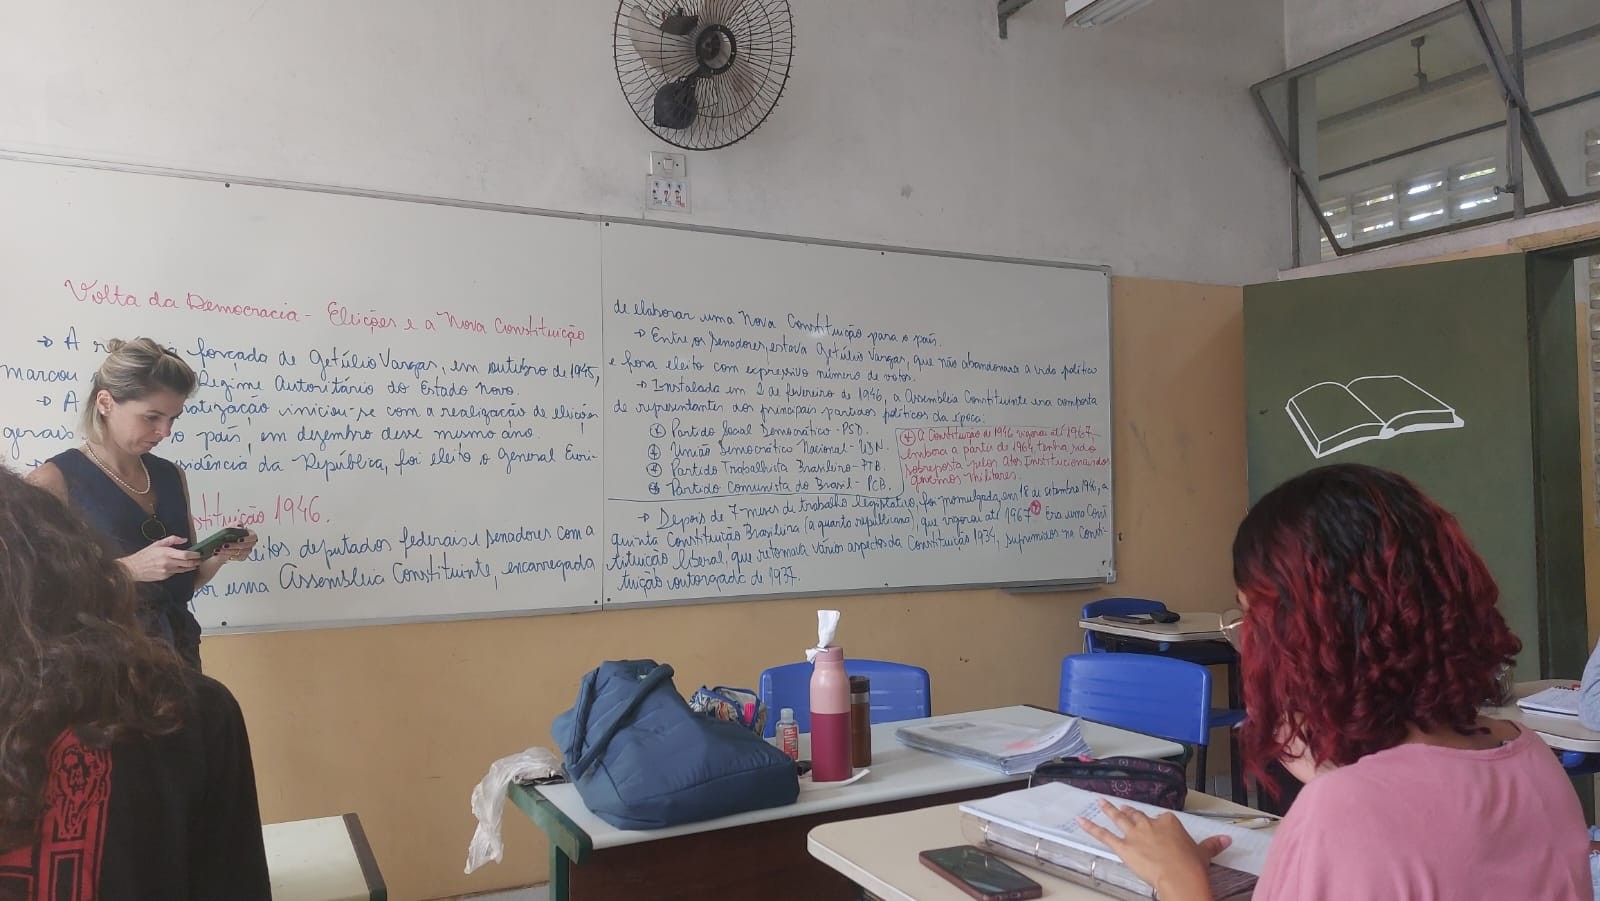 Volta da Democracia - Eleições e a Nova Constituição
→ A forçada de Getúlio Vargas, em outubro de 1945,
marcou Regime Autoritário do Estado Novo.
→ A iniciou-se com a realização de eleições
gerais país, em dezembro desse mesmo ano.
→ da República, foi eleito o General Euri-
1946.
deputados federais e senadores com a
uma Assembleia Constituinte, encarregada
de elaborar uma Nova Constituição para o país.
→ Entre os Senadores, estava Getúlio Vargas, que não abandonara a vida política
e fora eleito com expressivo número de votos.
→ Instalada em 2 de fevereiro de 1946, a Assembleia Constituinte era composta
de representantes dos principais partidos políticos da época:
Partido Social Democrático - PSD.
União Democrático Nacional - UDN.
Partido Trabalhista Brasileiro - PTB.
Partido Comunista do Brasil - PCB.
A Constituição de 1946 vigorou até 1967,
embora a partir de 1964 tenha sido
sobreposta pelos Atos Institucionais dos
governos militares.
→ Depois de 7 meses de trabalho legislativo, foi promulgada, em 18 de setembro 1946, a
quinta Constituição Brasileira (a quarta republicana), que vigorou até 1967 Era uma Cons
tituição liberal, que retomava vários aspectos da Constituição 1934, suprimidos na Consti-
tuição outorgada de 1937.